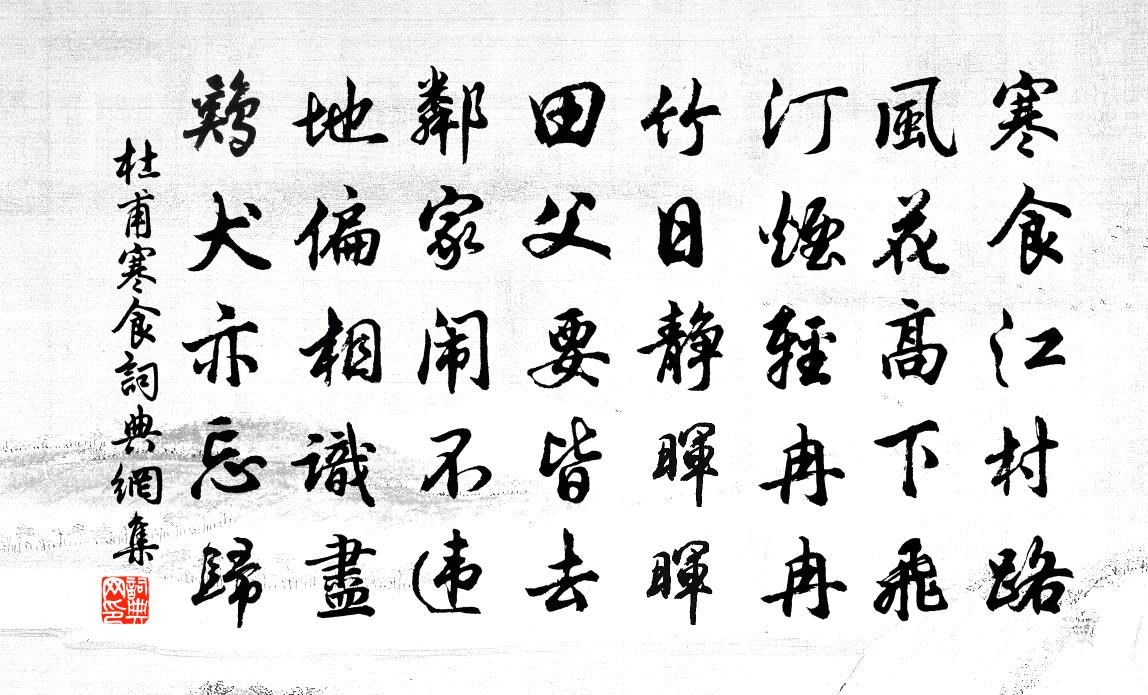 寒食江村路
風花高下飛
汀煙輕冉冉
竹日静暉暉
田父要皆去
鄰家闹不违
地偏相識盡
鷄犬亦忘歸
杜甫寒食詞典網集
詞典网印